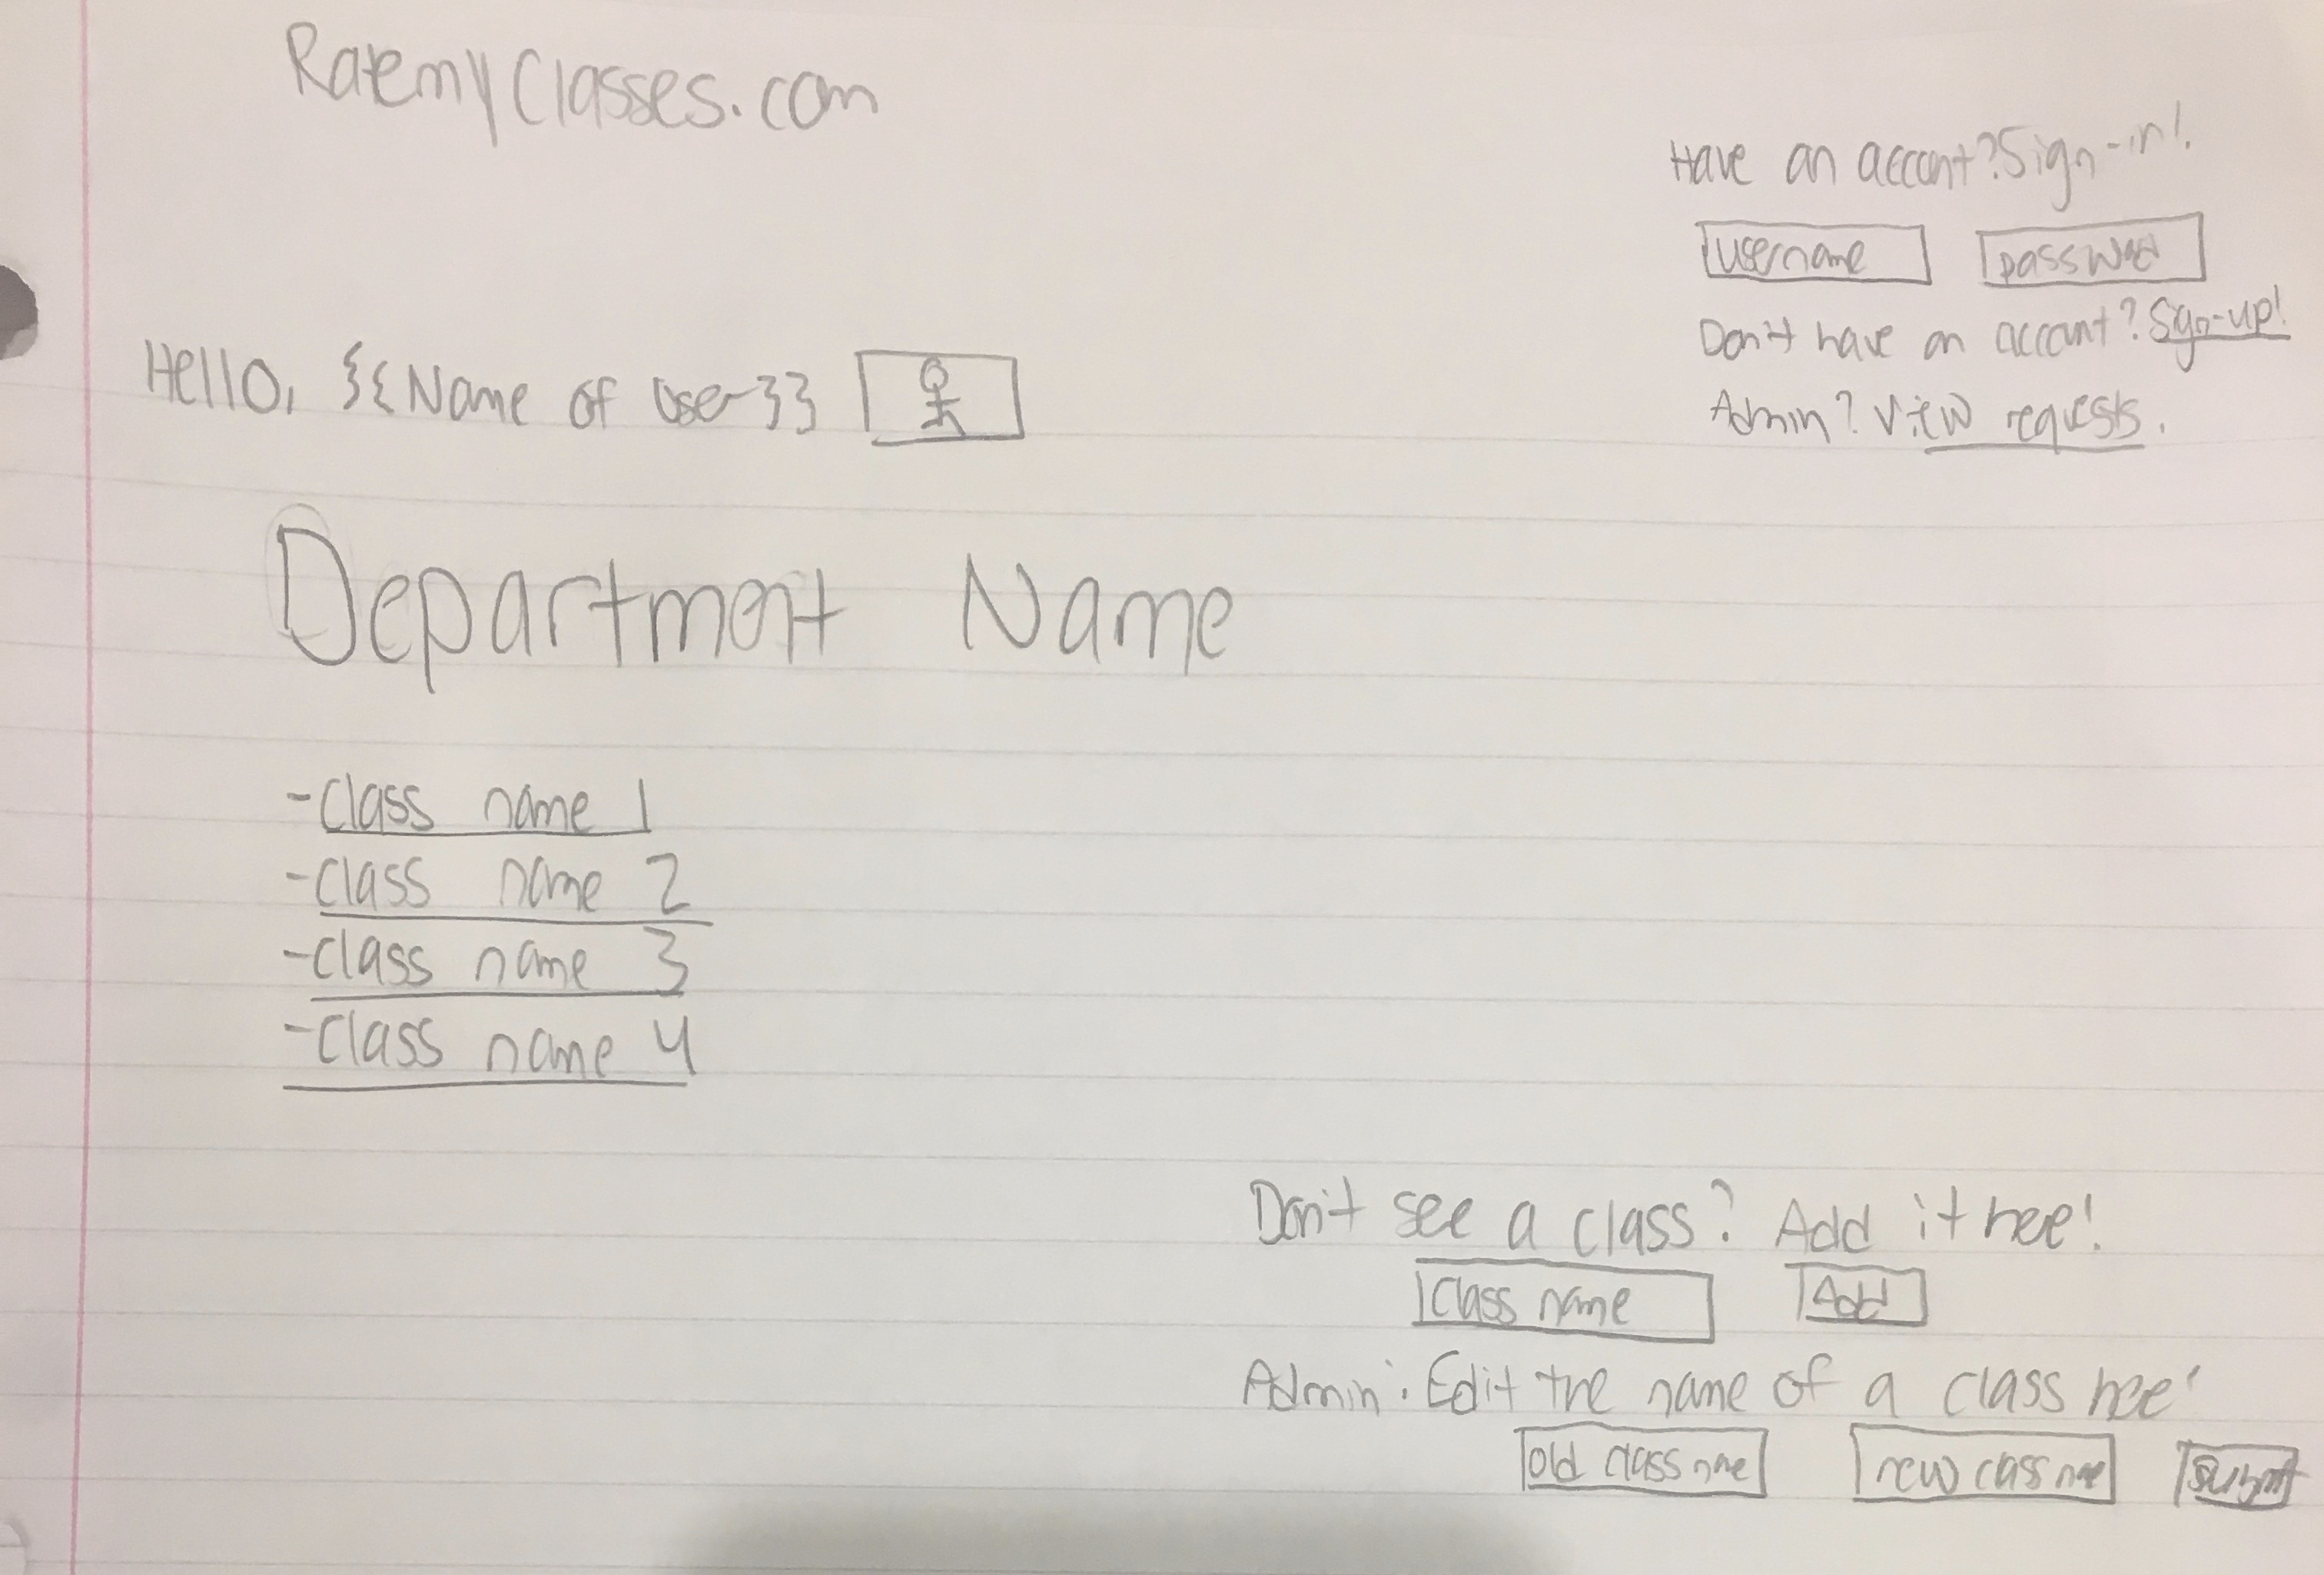 RatemyClasses.com
Have an account? Sign-in!
username password
Don't have an account? Sign-up!
Admin? View requests.
Hello, {{Name of user}}
Department Name
-Class name 1
-Class name 2
-Class name 3
-Class name 4
Don't see a class? Add it here!
Class name Add
Admin: Edit the name of a class here!
old class name new class name submit